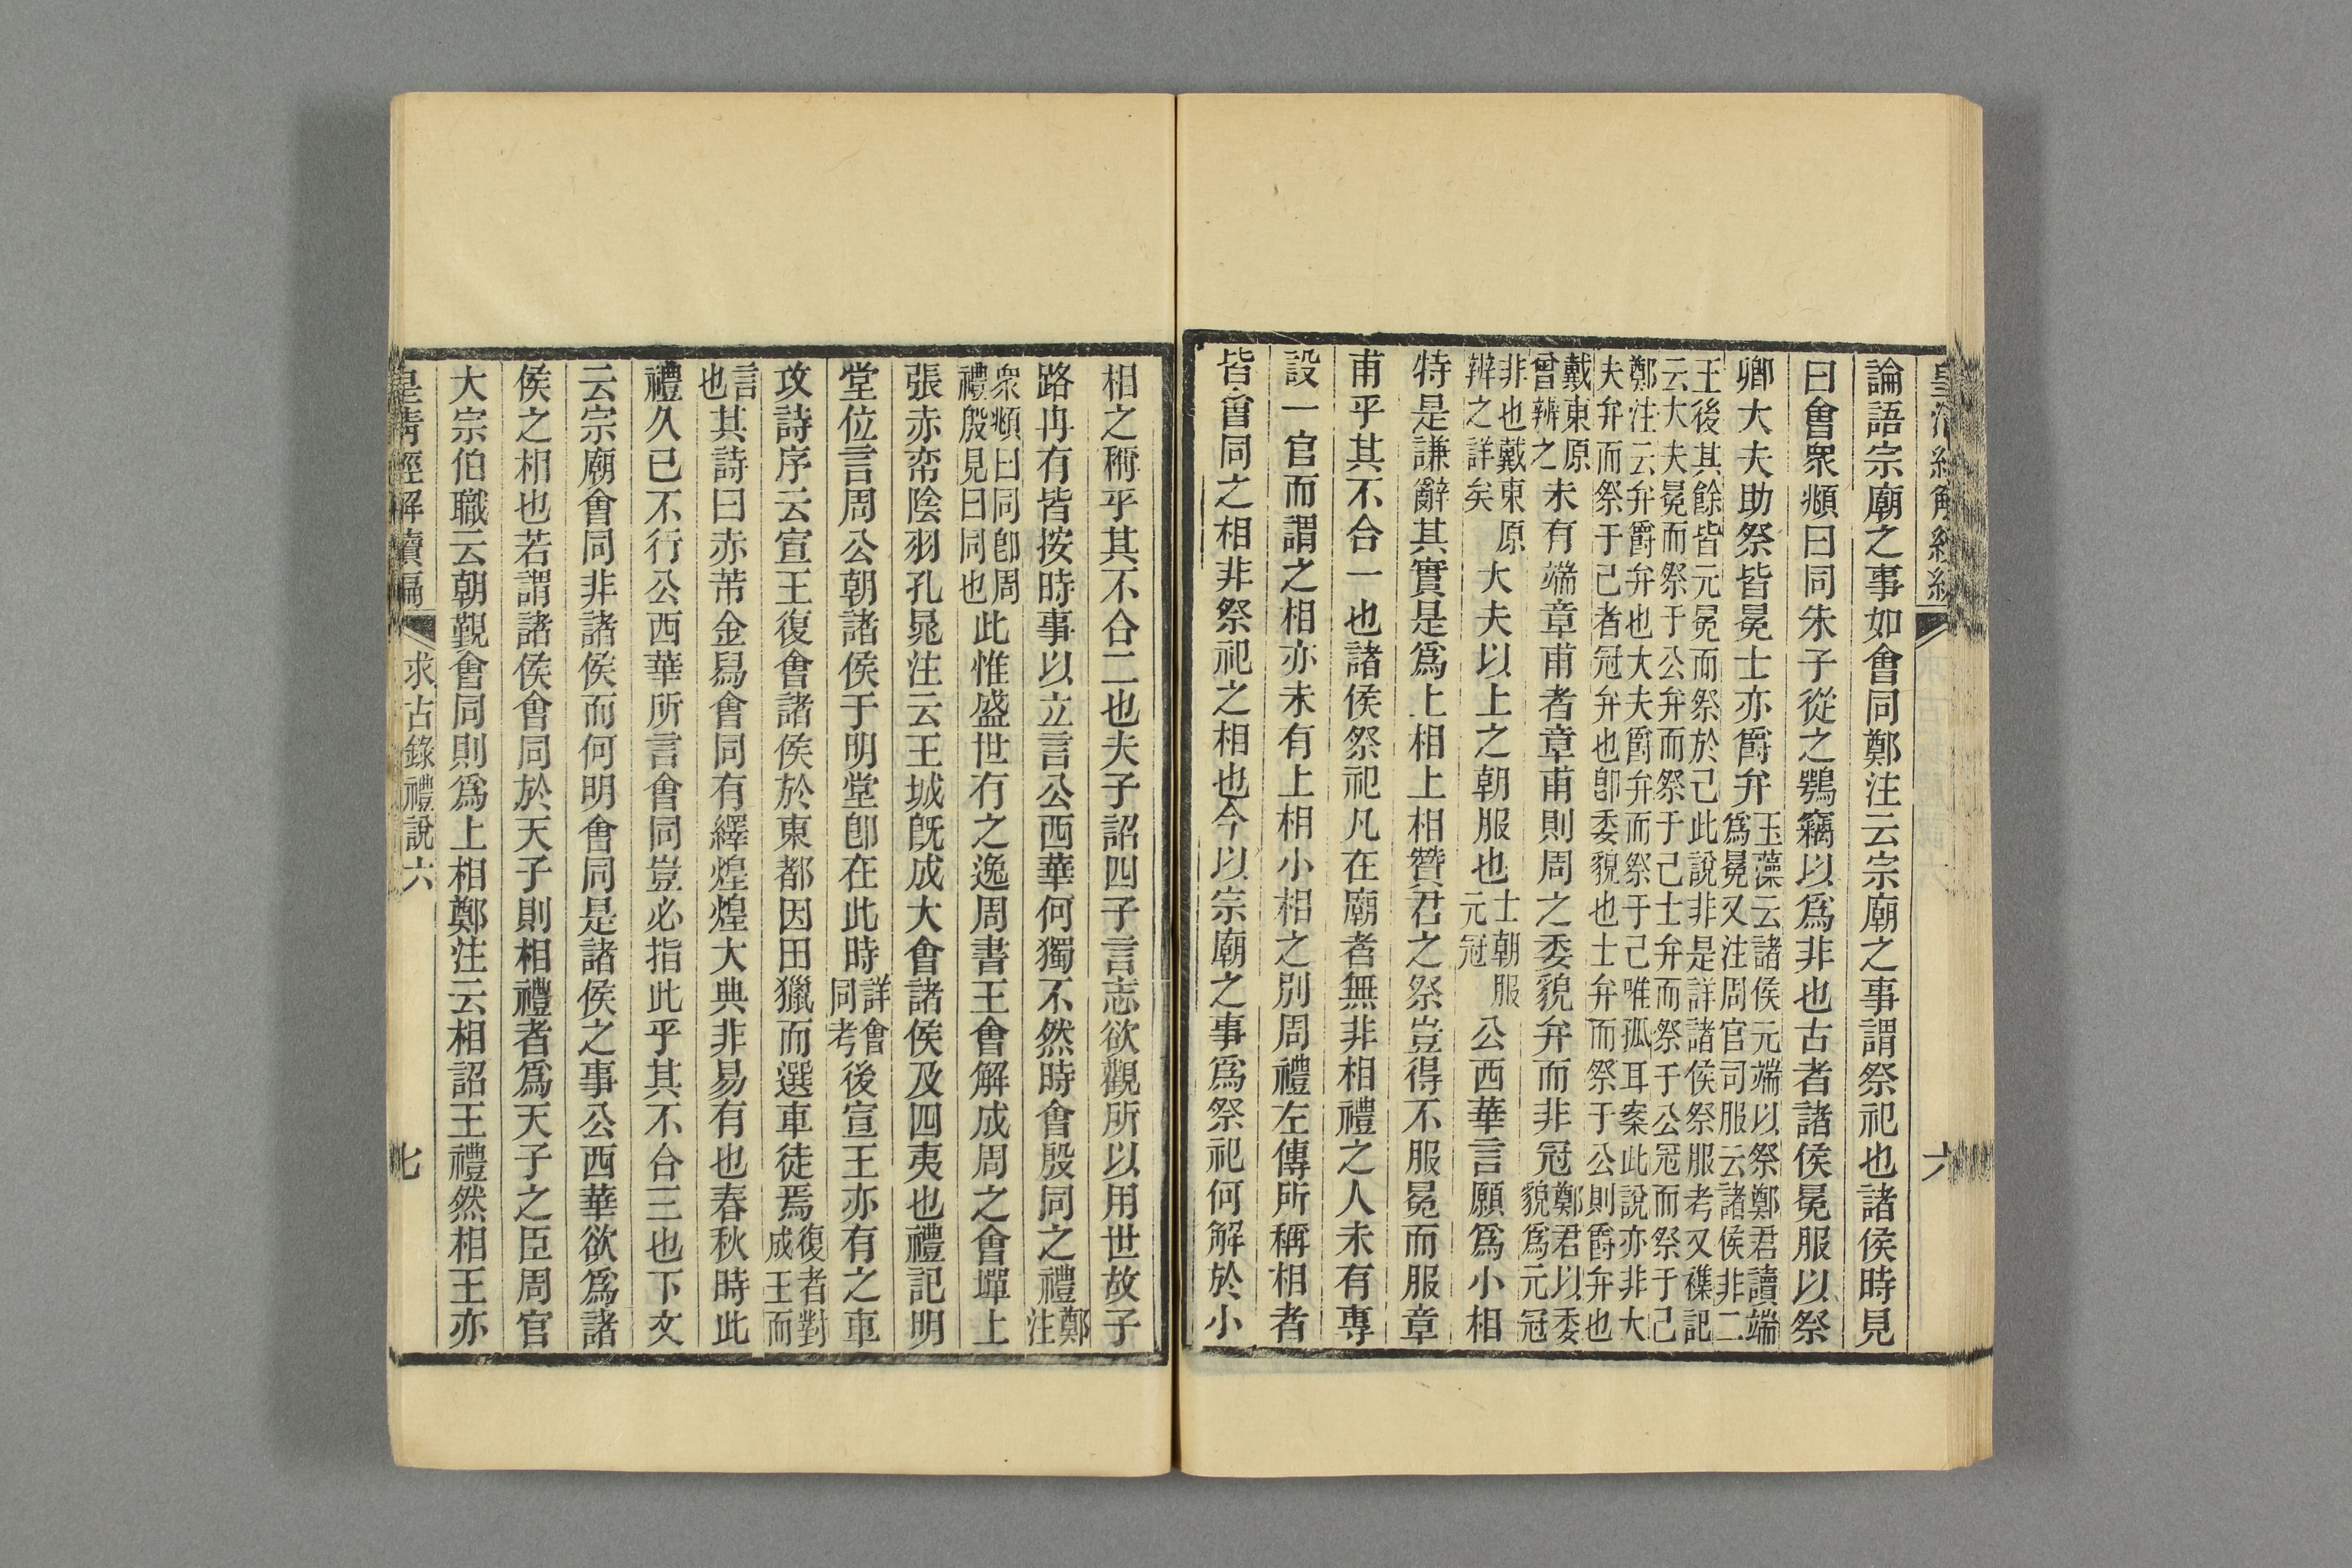 六
論語宗廟之事如會同鄭注云宗廟之事謂祭祀也諸侯時見
曰會眾頫曰同朱子從之鶚竊以爲非也古者諸侯冕服以祭
卿大夫助祭皆冕士亦爵弁玉藻云諸侯元端以祭鄭君讀端
爲冕又注周官司服云諸侯非二
王後其餘皆元冕而祭於己此說非是詳諸侯祭服考又襍記
云大夫冕而祭于公弁而祭于己士弁而祭于公冠而祭于己
鄭注云弁爵弁也大夫爵弁而祭于己唯孤耳案此說亦非大
夫弁而祭于己者冠弁也卽委貌也士弁而祭于公則爵弁也
戴東原
曾辨之未有端章甫者章甫則周之委貌弁而非冠鄭君以委
貌爲元冠
非也戴東原
辨之詳矣大夫以上之朝服也士朝服
元冠公西華言願爲小相
特是謙辭其實是爲上相上相贊君之祭豈得不服冕而服章
甫乎其不合一也諸侯祭祀凡在廟者無非相禮之人未有專
設一官而謂之相亦未有上相小相之別周禮左傳所稱相者
皆會同之相非祭祀之相也今以宗廟之事爲祭祀何解於小
相之稱乎其不合二也夫子詔四子言志欲觀所以用世故子
路冉有皆按時事以立言公西華何獨不然時會殷同之禮鄭
注
眾頫曰同卽周
禮殷見曰同也此惟盛世有之逸周書王會解成周之會墠上
張赤帟陰羽孔晁注云王城旣成大會諸侯及四夷也禮記明
堂位言周公朝諸侯于明堂卽在此時詳會
同考後宣王亦有之車
攻詩序云宣王復會諸侯於東都因田獵而選車徒焉復者對
成王而
言
也其詩曰赤芾金舄會同有繹煌煌大典非易有也春秋時此
禮久已不行公西華所言會同豈必指此乎其不合三也下文
云宗廟會同非諸侯而何明會同是諸侯之事公西華欲爲諸
侯之相也若謂諸侯會同於天子則相禮者爲天子之臣周官
大宗伯職云朝覲會同則爲上相鄭注云相詔王禮然相王亦
皇清經解續編 求古錄禮說六 七